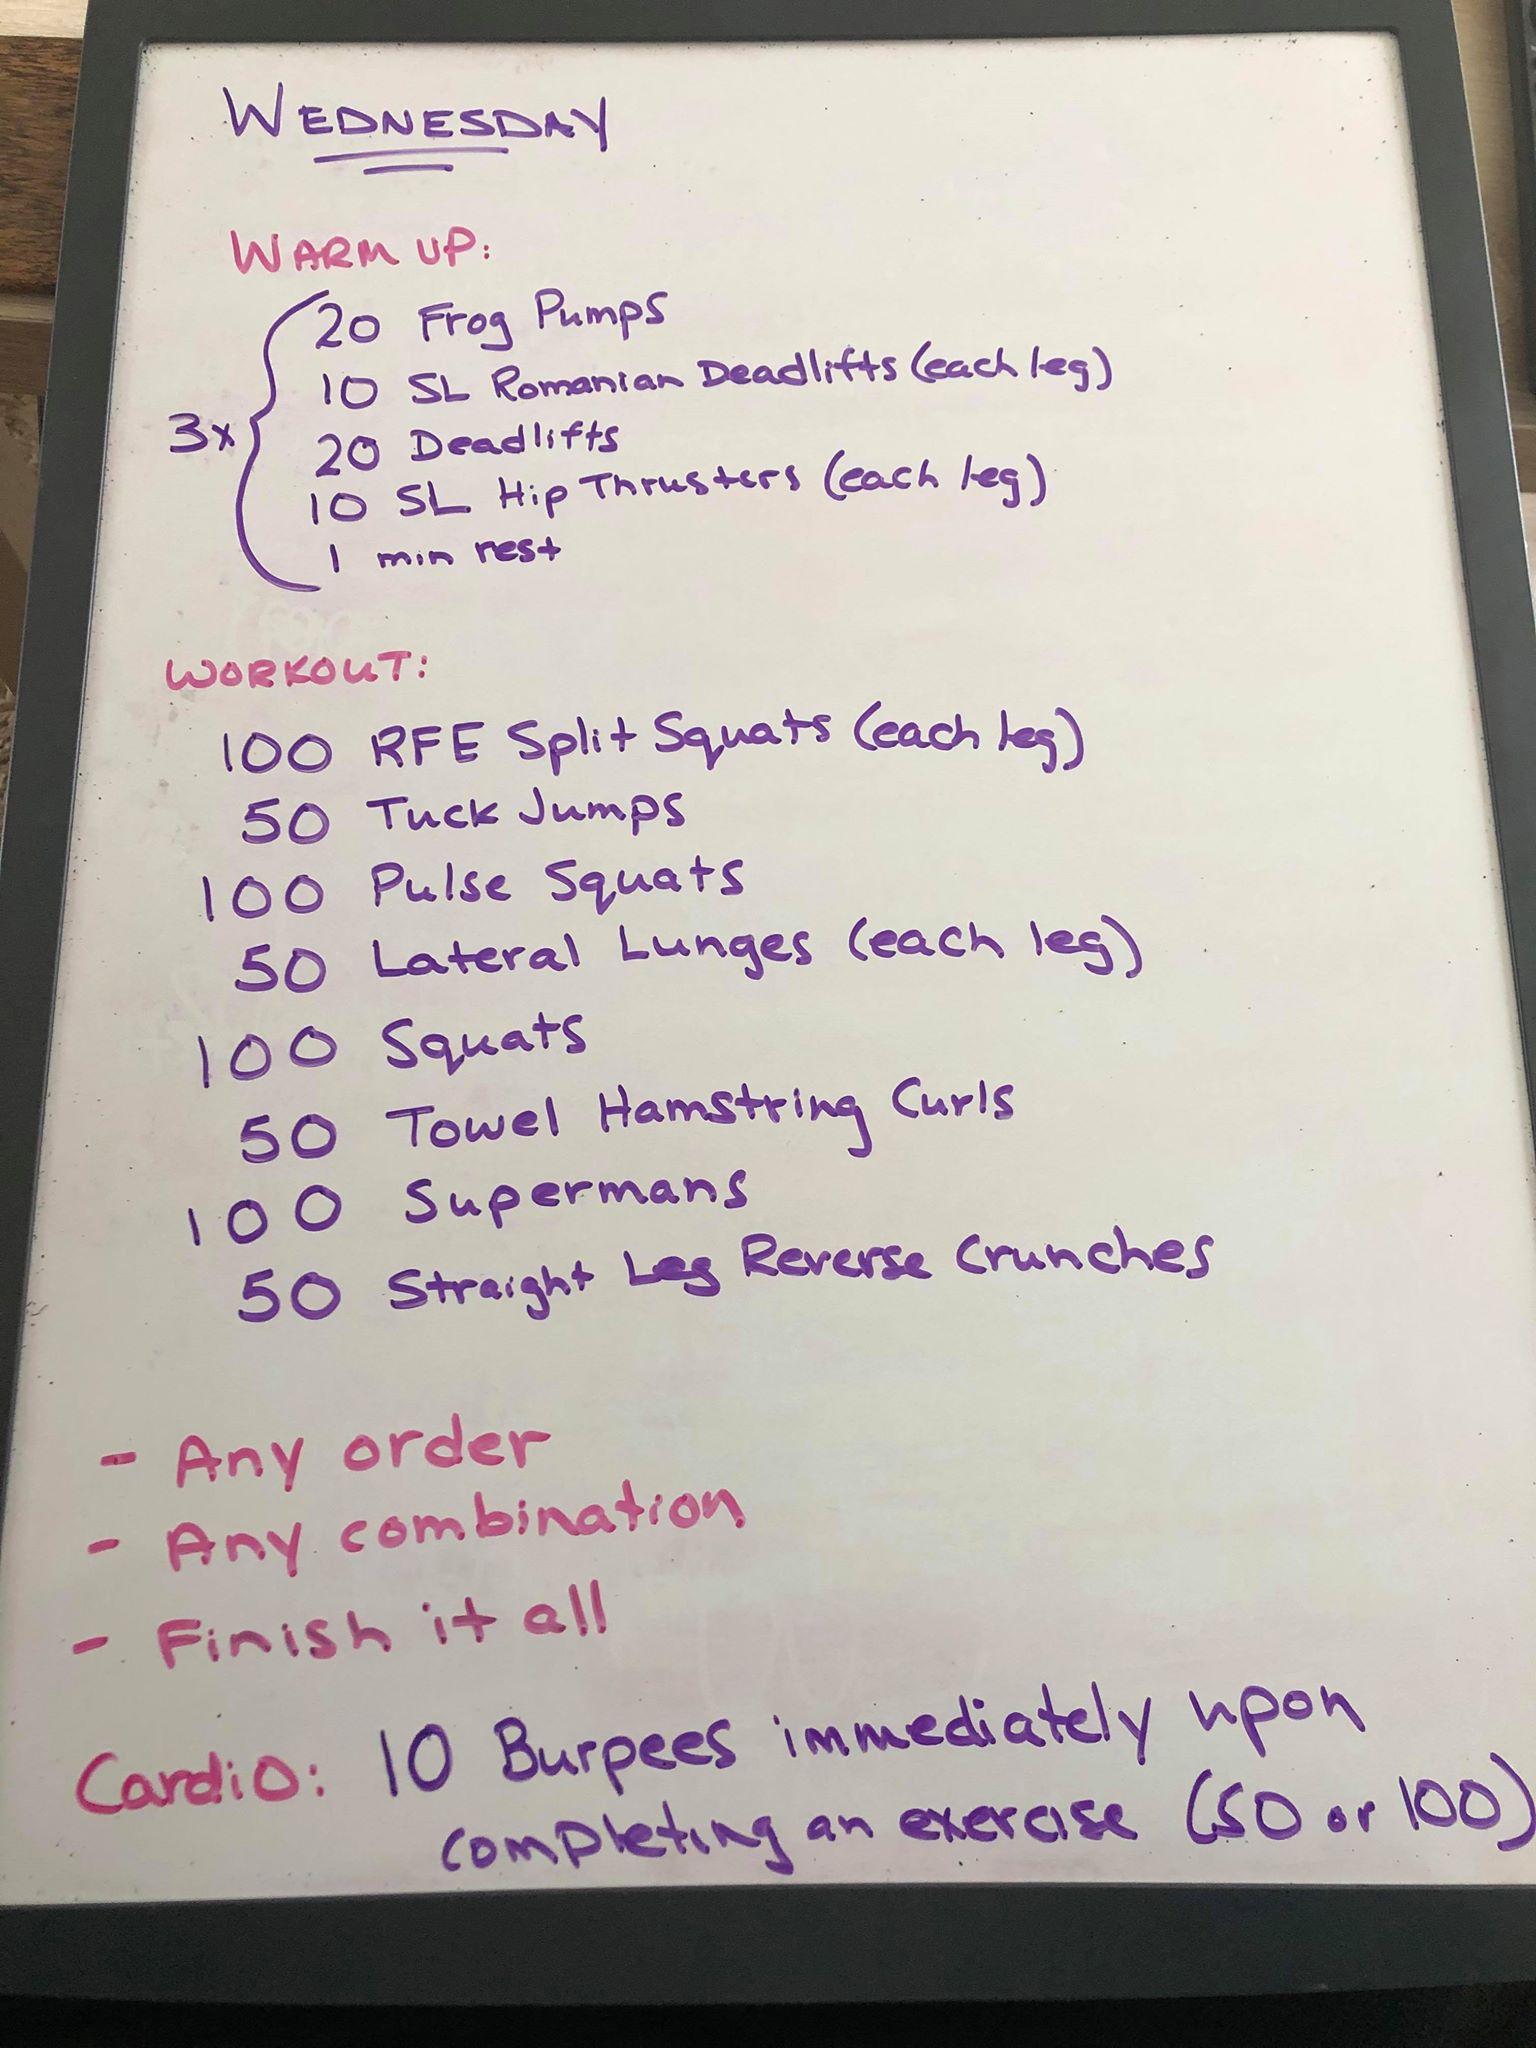 WEDNESDAY
WARM UP:
20 Frog Pumps
10 SL Romanian Deadlifts (each leg)
3x
20 Deadlifts
10 SL Hip Thrusters (each leg)
1 min rest
WORKOUT:
100 RFE Split Squats (each leg)
50 Tuck Jumps
100 Pulse Squats
50 Lateral Lunges (each leg)
100 Squats
50 Towel Hamstring Curls
100 Supermans
50 Straight Leg Reverse Crunches
- Any order
- Any combination
- Finish it all
Cardio: 10 Burpees immediately upon
completing an exercise (50 or 100)